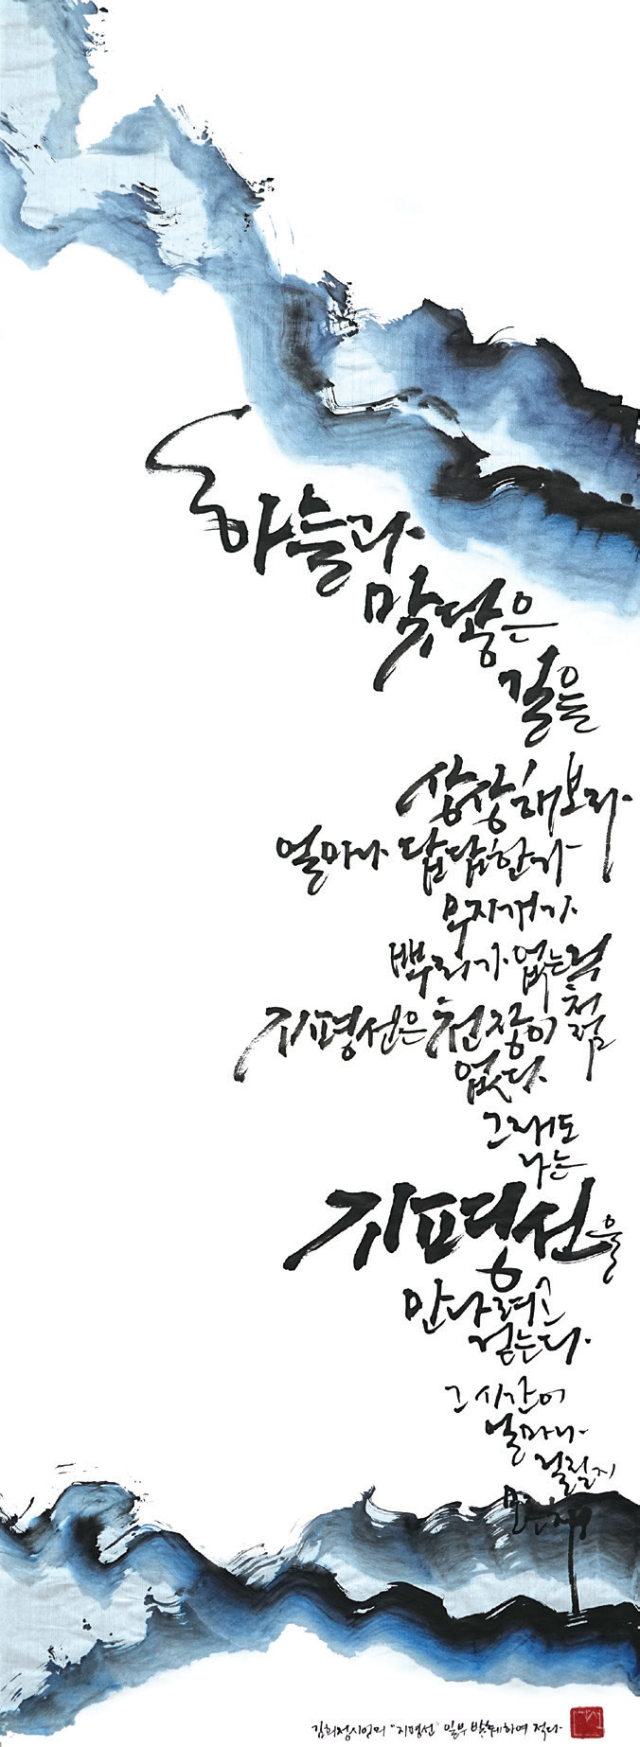 하늘과
맞닿은
길을
상상해보라
얼마나 답답한가
무지개가
뿌리가 없는 것처럼
지평선은 천장이
없다
그래도
나는
지평선을
만나려고
걷는다.
그 시간이
얼마나
걸릴지
모른 채
김희정시인의 "지평선" 일부 발췌하여 적다